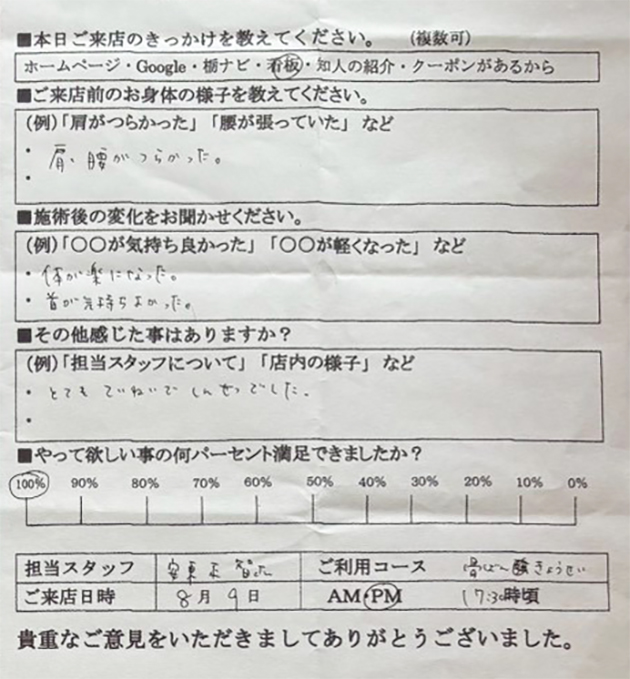 ■本日ご来店のきっかけを教えてください。 (複数可)
ホームページ・Google・栃ナビ・看板・知人の紹介・クーポンがあるから
■ご来店前のお身体の様子を教えてください。
(例)「肩がつらかった」「腰が張っていた」など
・ 肩、腰がつらかった。
・
■施術後の変化をお聞かせください。
(例)「〇〇が気持ち良かった」「〇〇が軽くなった」など
・ 体が楽になった。
・ 首が気持ちよかった。
■その他感じた事はありますか?
(例)「担当スタッフについて」「店内の様子」など
・ とても ていねいで しんせつでした。
・
■やって欲しい事の何パーセント満足できましたか?
100% 90% 80% 70% 60% 50% 40% 30% 20% 10% 0%
担当スタッフ 安東 ご利用コース 骨ばん きょうせい
ご来店日時 8月9日 AM・PM 17:30時頃
貴重なご意見をいただきましてありがとうございました。